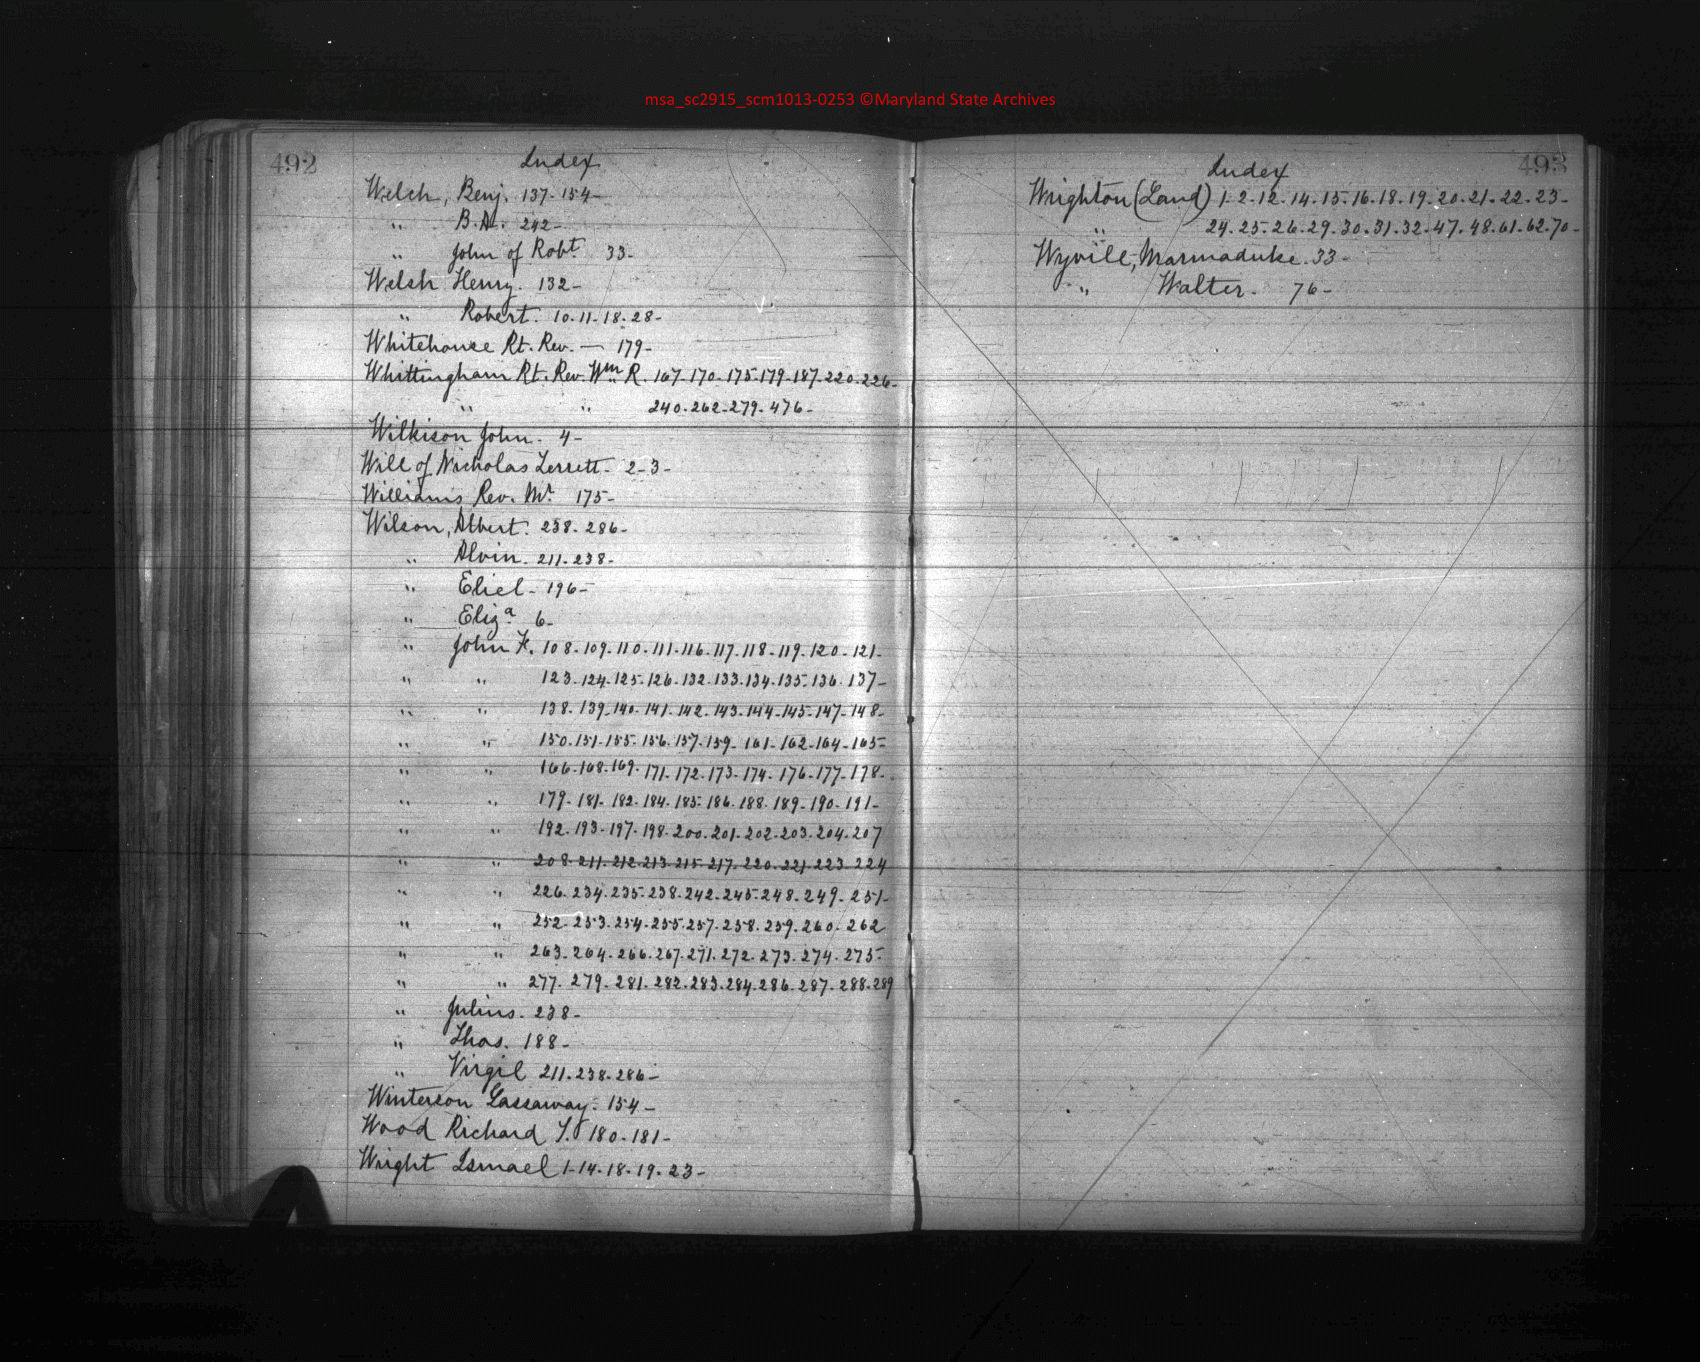 msa_sc2915_scm1013-0253 ©Maryland State Archives
492
Index
Welch, Benj. 137-154-
" B.A. 242-
" John of Robt. 33-
Welsh Henry. 132-
" Robert. 10-11-18-28-
Whitehouse Rt. Rev. — 179-
Whittingham Rt. Rev. Wm R. 167-170-175-179-187-220-226-
" " 240-262-279-476-
Wilkison John. 4-
Will of Nicholas Terrett- 2-3-
Williams Rev. Mr. 175-
Wilson, Albert. 238-286-
" Alvin. 211-238-
" Eliel- 196-
" Eliza. 6-
" John F. 108-109-110-111-116-117-118-119-120-121-
" " 123-124-125-126-132-133-134-135-136-137-
" " 138-139-140-141-142-143-144-145-147-148-
" " 150-151-155-156-157-159-161-162-164-165-
" " 166-168-169-171-172-173-174-176-177-178-
" " 179-181-182-184-185-186-188-189-190-191-
" " 192-193-197-198-200-201-202-203-204-207
" " 208-211-212-213-215-217-220-221-223-224
" " 226-234-235-238-242-245-248-249-251-
" " 252-253-254-255-257-258-259-260-262
" " 263-264-266-267-271-272-273-274-275-
" " 277-279-281-282-283-284-286-287-288-289
" Julius. 238-
" Thos. 188-
" Virgil 211-238-286-
Winterson Gassaway. 154-
Wood Richard T. 180-181-
Wright Ismael 1-14-18-19-23-
493
Index
Wrighton (Land) 1-2-12-14-15-16-18-19-20-21-22-23-
" 24-25-26-29-30-31-32-47-48-61-62-70-
Wyvill, Marmaduke. 33-
" Walter. 76-